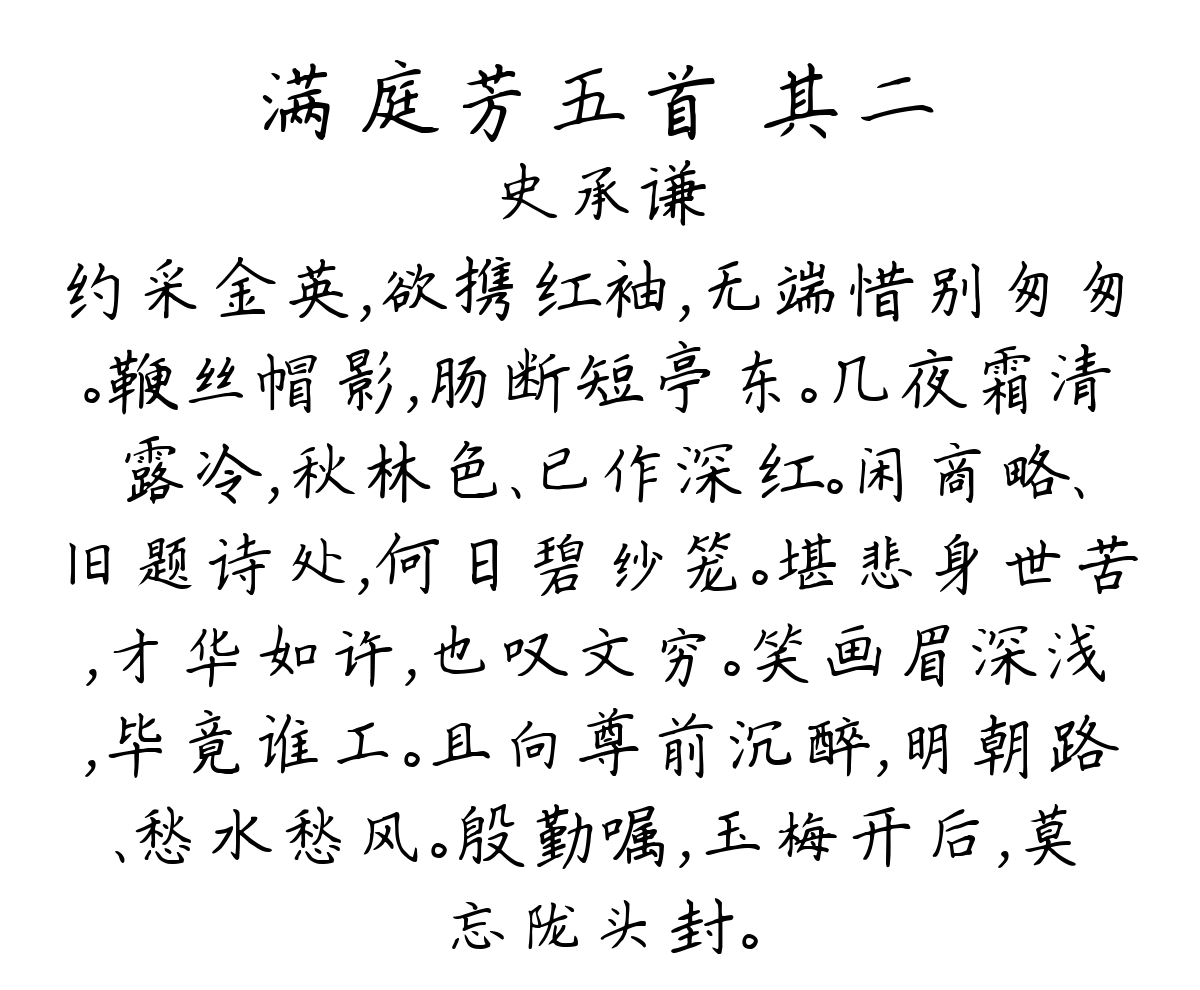 满庭芳五首 其二
史承谦
约采金英,欲携红袖,无端惜别匆匆
。鞭丝帽影,肠断短亭东。几夜霜清
露冷,秋林色、已作深红。闲商略、
旧题诗处,何日碧纱笼。堪悲身世苦
,才华如许,也叹文穷。笑画眉深浅
,毕竟谁工。且向尊前沉醉,明朝路
、愁水愁风。殷勤嘱,玉梅开后,莫
忘陇头封。